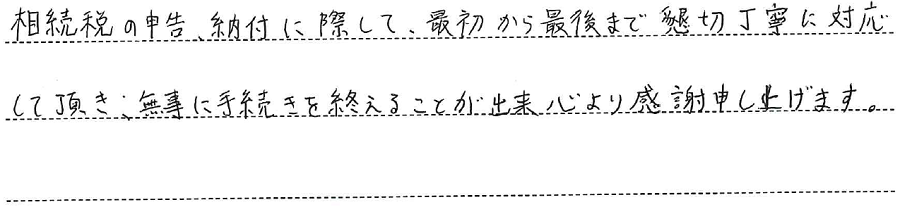 相続税の申告、納付に際して、最初から最後まで懇切丁寧に対応
して頂き、無事に手続きを終えることが出来心より感謝申し上げます。